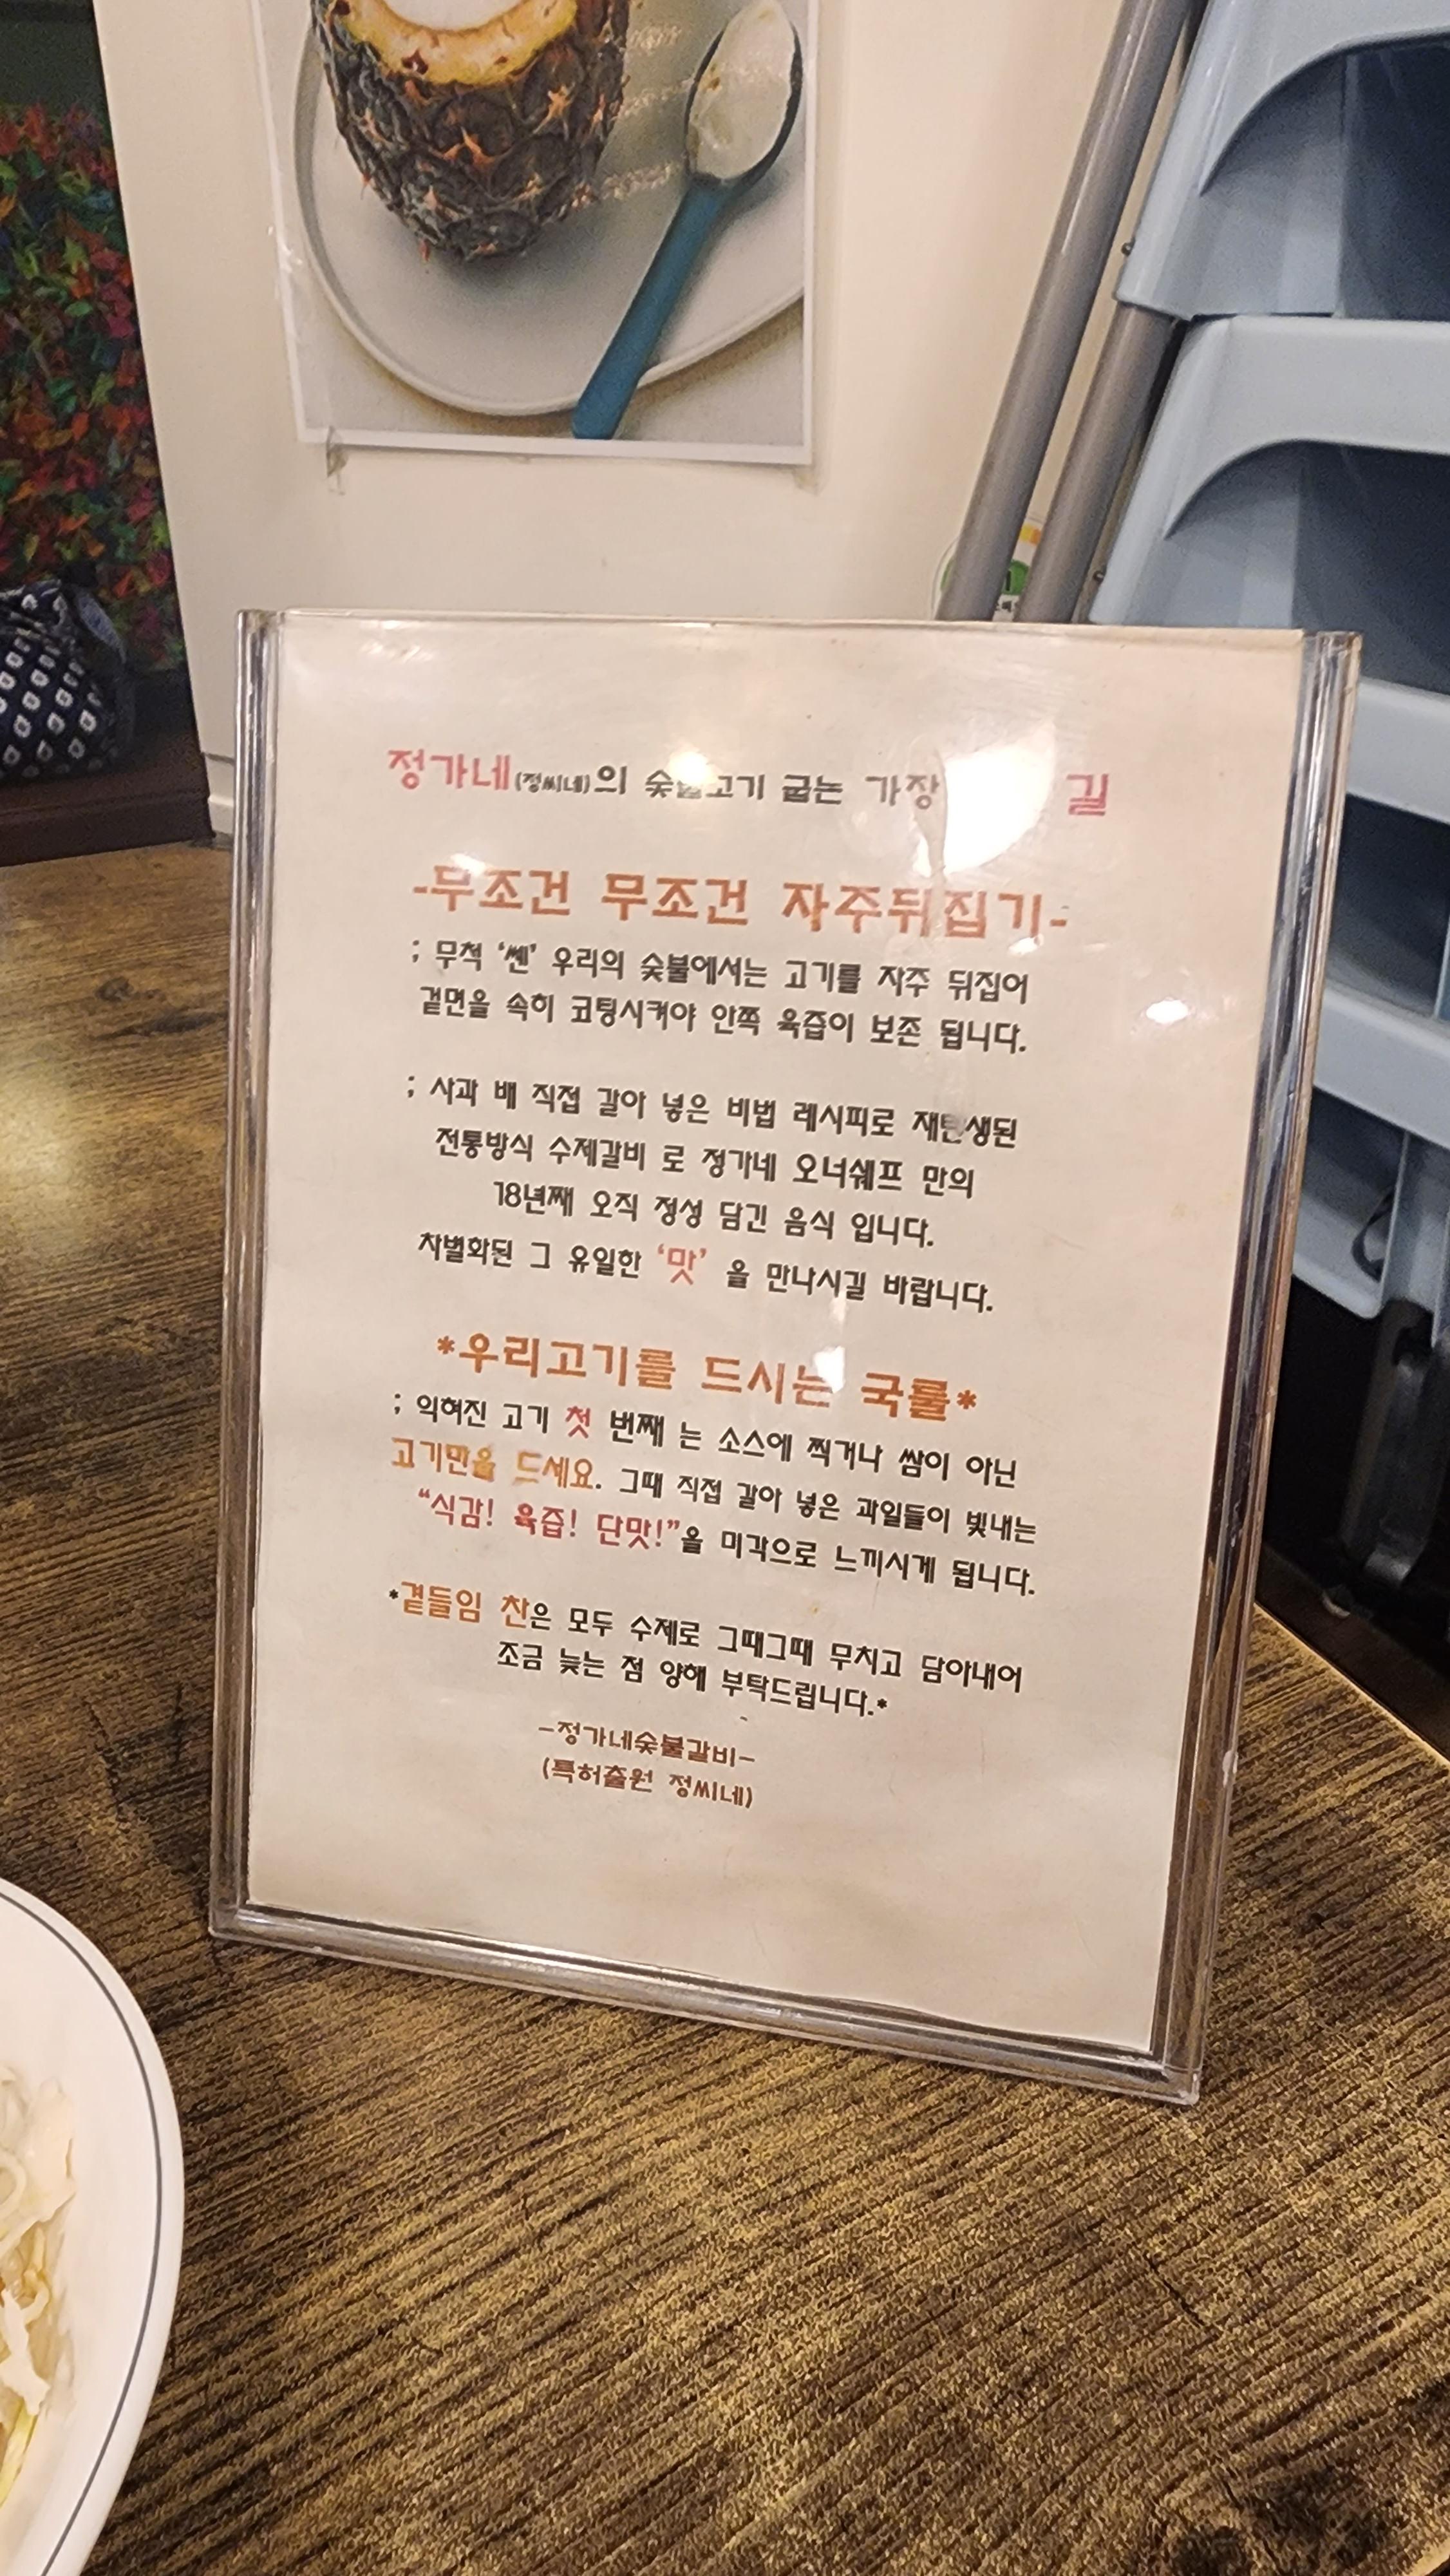 정가네(정씨네)의 숯불고기 굽는 가장 길
-무조건 무조건 자주뒤집기-
; 무척 ‘쎈’ 우리의 숯불에서는 고기를 자주 뒤집어
겉면을 속히 코팅시켜야 안쪽 육즙이 보존 됩니다.
; 사과 배 직접 갈아 넣은 비법 레시피로 재탄생된
전통방식 수제갈비 로 정가네 오너쉐프 만의
18년째 오직 정성 담긴 음식 입니다.
차별화된 그 유일한 ‘맛’ 을 만나시길 바랍니다.
*우리고기를 드시는 국룰*
; 익혀진 고기 첫 번째 는 소스에 찍거나 쌈이 아닌
고기만을 드세요. 그때 직접 갈아 넣은 과일들이 빛내는
“식감! 육즙! 단맛!”을 미각으로 느끼시게 됩니다.
*곁들임 찬은 모두 수제로 그때그때 무치고 담아내어
조금 늦는 점 양해 부탁드립니다.*
-정가네숯불갈비-
(특허출원 정씨네)